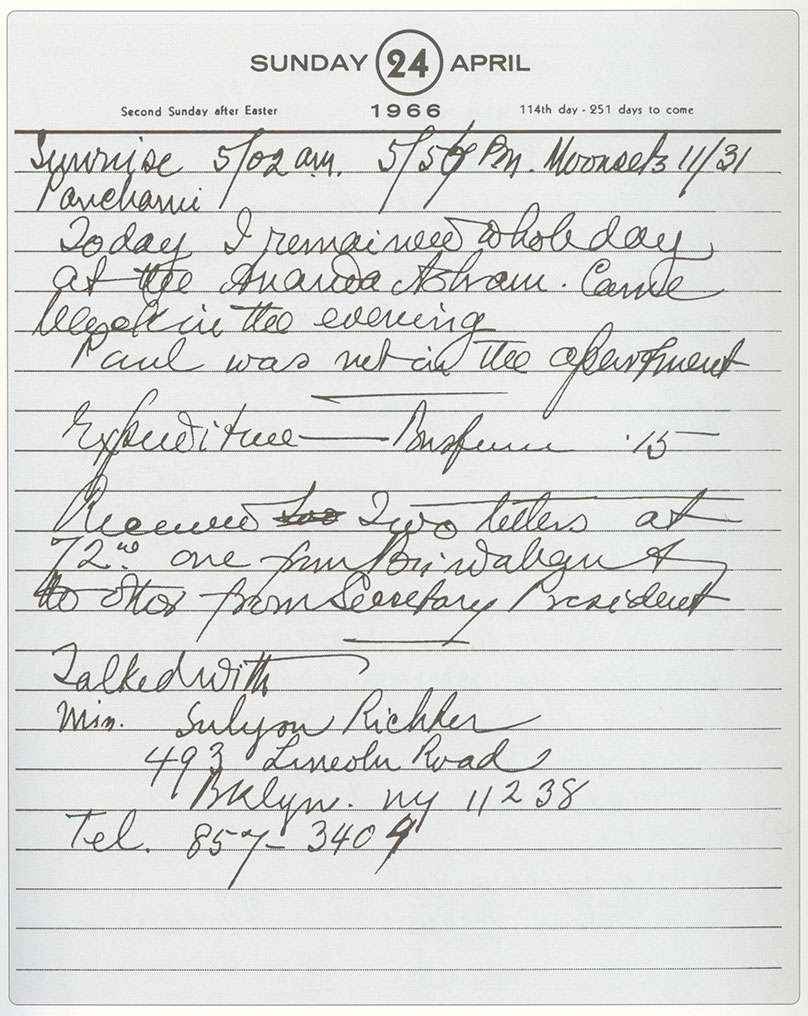 SUNDAY 24 APRIL
Second Sunday after Easter 1966 114th day - 251 days to come
Sunrise 5/02 a.m. Pm. Moonsets 11/31
Panchami
Today I remained whole day
at the Ananda Ashram. Came
back in the evening
Paul was not in the apartment
Expenditure — Busfare .15
Received Two letters at
72nd one from &
other from Secretary President
Talked with
Min. Richter
493 Lincoln Road
Bklyn. ny 11238
Tel. 857-3409